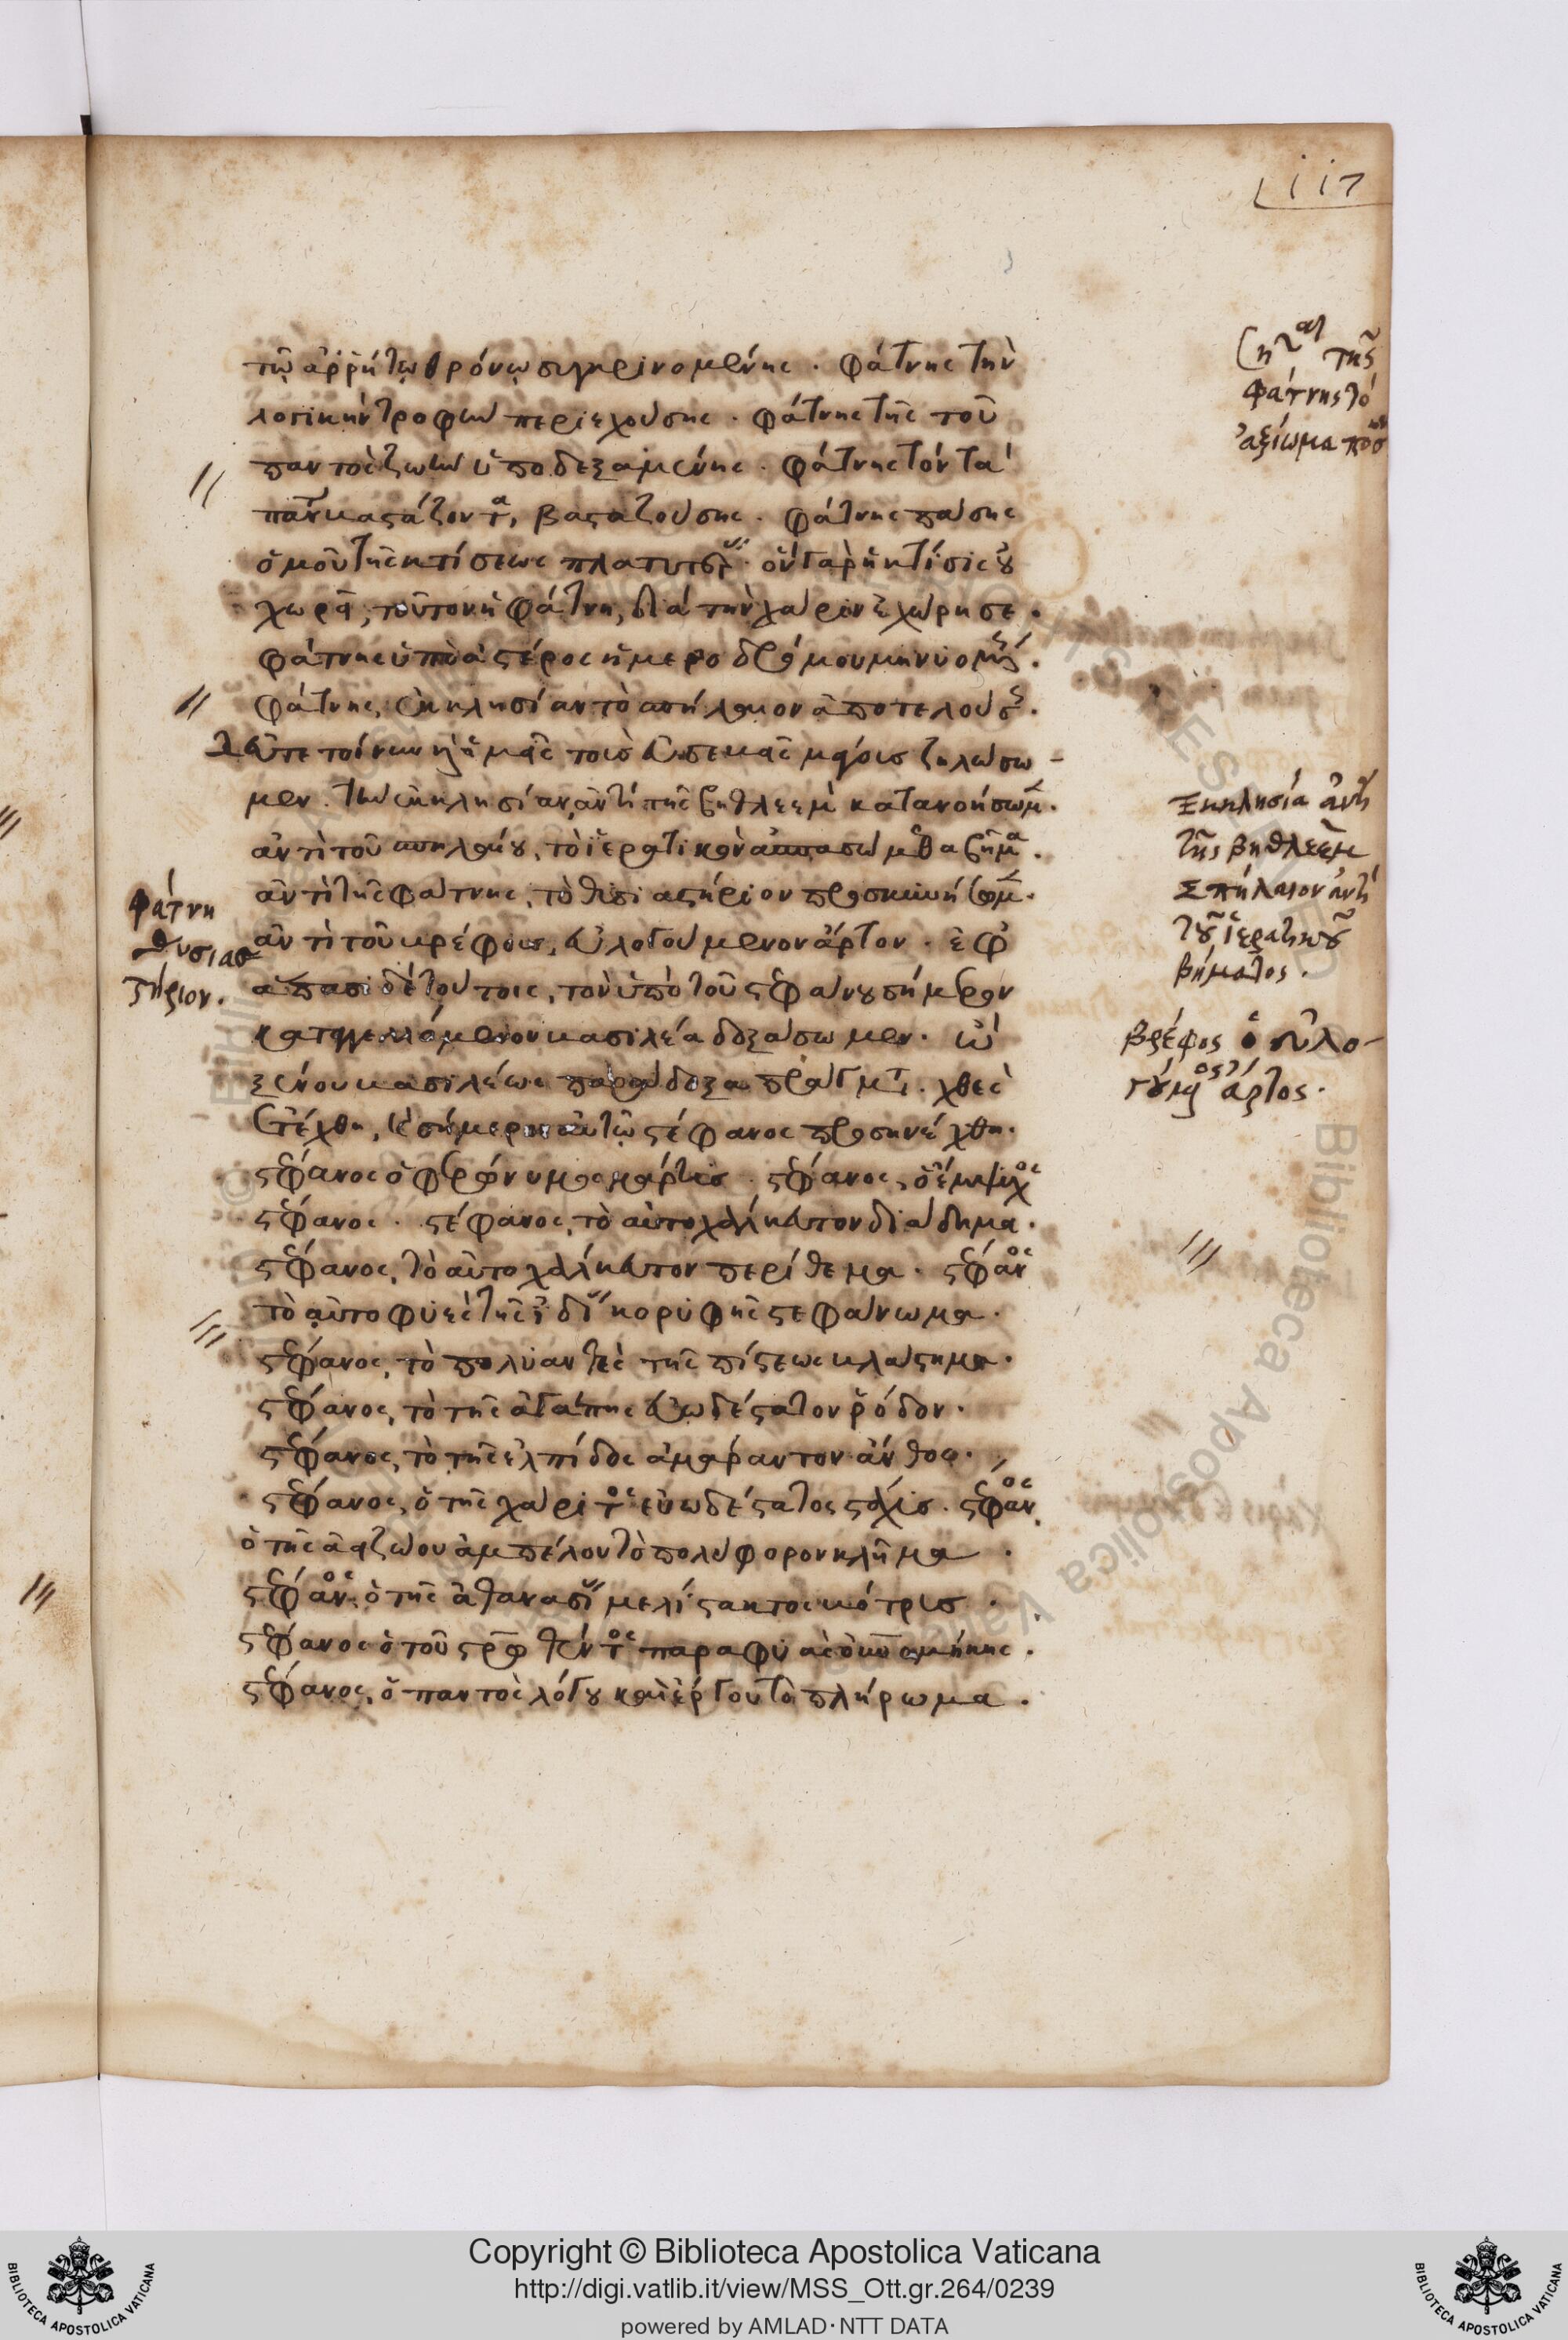 117
τῶ ἀρρήτω θρόνω συγκρινομένης . φάτνης τὴν
λογικὴν τροφὴν περιεχούσης . φάτνης τῆς τοῦ
παντὸς ζωὴν ὑποδεξαμένης . φάτνης τὸν τὰ
πάντα βαστάζοντα, βασταζούσης . φάτνης πάσης
ὁμοῦ τῆς κτίσεως πλατυτέρας . ὃν γὰρ ἡ κτίσις οὐ
χωρεῖ, τοῦτον ἡ φάτνη, διὰ τὴν χάριν ἐχώρησε .
φάτνης ὑπὸ ἀστέρος ἡμεροδρόμου μηνυομένης .
φάτνης, ἐκκλησίαν τὸ σπήλαιον ἀποτελούσης .
Δεῦτε τοίνυν καὶ ἡμεῖς τοὺς εὐσεβεῖς μάγους ζηλώσω-
μεν . τὴν ἐκκλησίαν, ἀντὶ τῆς βηθλεὲμ κατανοήσωμεν .
ἀντὶ τοῦ σπηλαίου, τὸ ἱερατικὸν ἀσπασώμεθα βῆμα .
ἀντὶ τῆς φάτνης, τὸ θυσιαστήριον προσκυνήσωμεν .
ἀντὶ τοῦ βρέφους, εὐλογούμενον ἄρτον . ἐφ
ἅπασι δὲ τούτοις, τὸν ὑπὸ τοῦ στεφάνου σήμερον
καταγγελλόμενον βασιλέα δοξάσωμεν . ὢ
ξένου βασιλέως παράδοξα πράγματα . χθὲς
ἐτέχθη, καὶ σήμερον αὐτῶ στέφανος προσηνέχθη .
στέφανος ὁ φερώνυμος μάρτυς . στέφανος, ὁ ἔμψυχος
στέφανος . στέφανος, τὸ αὐτοχάλκευτον διάδημα .
στέφανος, τὸ αὐτοχάλκευτον περίθεμα . στέφανος
τὸ αὐτοφυὲς τῆς ἰδίας κορυφῆς στεφάνωμα .
στέφανος, τὸ πολυανθὲς τῆς πίστεως βλάστημα .
στέφανος, τὸ τῆς ἀγάπης εὐωδέστατον ῥόδον .
στέφανος, τὸ τῆς ἐλπίδος ἀμάραντον ἄνθος .
στέφανος, ὁ τῆς χάριτος εὐωδέστατος στάχυς . στέφανος
ὁ τῆς ἀειζώου ἀμπέλου τὸ πολυφόρον κλῆμα .
στέφανος ὁ τῆς ἀθανασίας μελίστακτος βότρυς .
στέφανος ὁ τοῦ σταυρωθέντος παραφυὰς
στέφανος, ὁ παντὸς λόγου καὶ ἔργου τὸ πλήρωμα .
τῆς
φάτνης τὸ
ἀξίωμα πόσον
Ἐκκλησία ἀντὶ
τῆς βηθλεὲμ
Σπήλαιον ἀντὶ
τοῦ ἱερατικοῦ
βήματος .
βρέφος ὁ εὐλο-
γούμενος ἄρτος .
φάτνη
θυσιασ
τήριον .
Copyright © Biblioteca Apostolica Vaticana
http://digi.vatlib.it/view/MSS_Ott.gr.264/0239
powered by AMLAD·NTT DATA
BIBLIOTECA APOSTOLICA VATICANA
BIBLIOTECA APOSTOLICA VATICANA